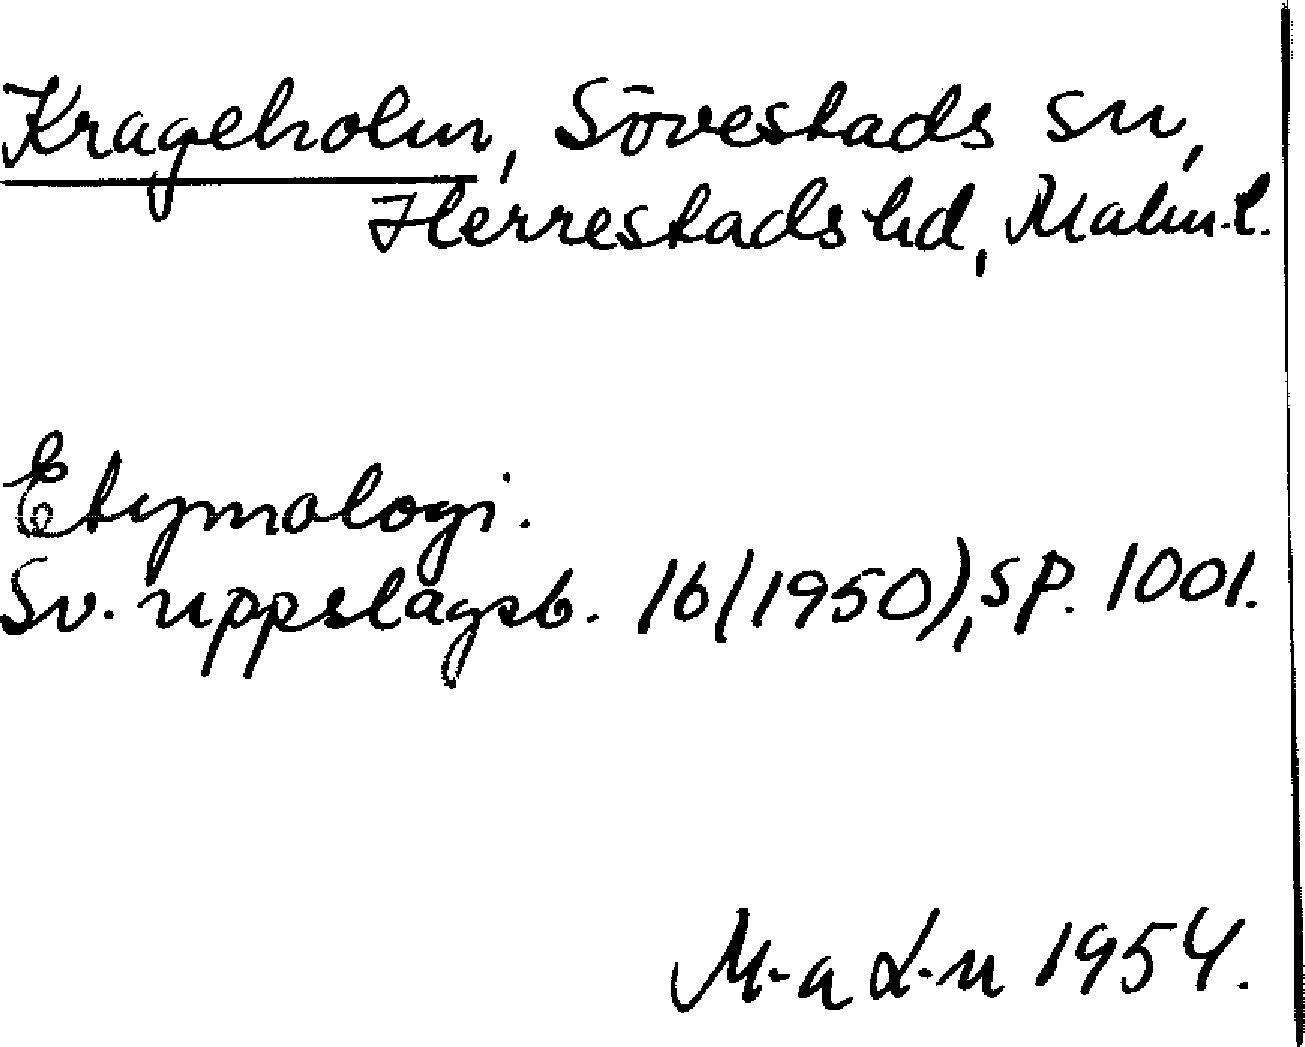 Krageholm, Sövestads sn,
Herrestads hd, Malm. l.
Etymologi.
Sv. uppslagsb. 16 (1950), sp. 1001.
M-a L-n 1954.